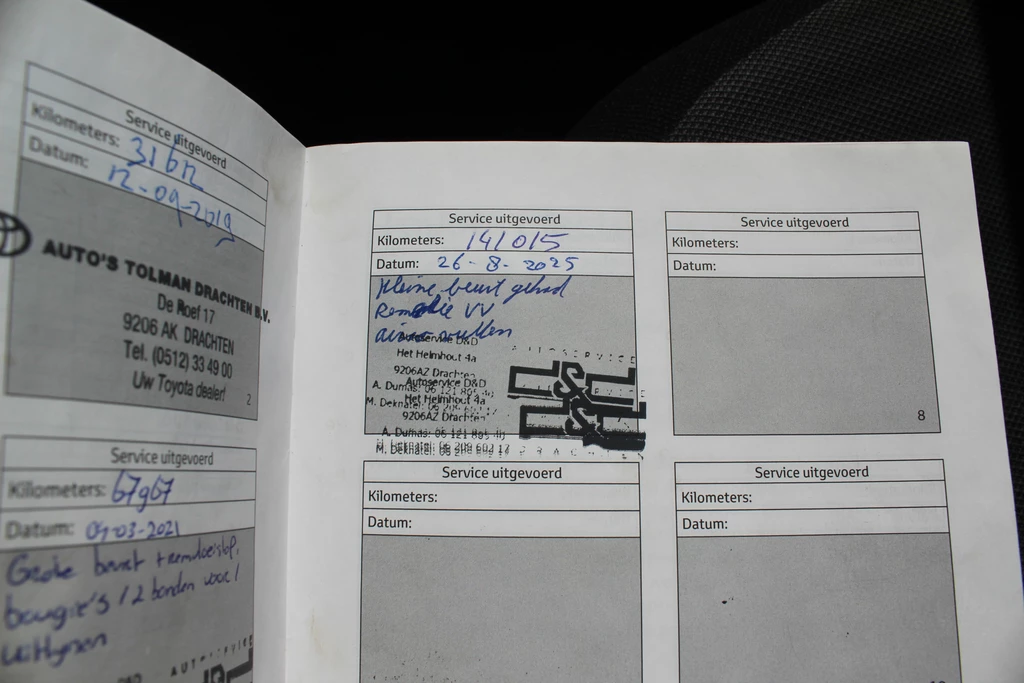 Service uitgevoerd
Kilometers: 31612
Datum: 12-09-2019
AUTO'S TOLMAN DRACHTEN B.V.
De Roef 17
9206 AK DRACHTEN
Tel. (0512) 33 49 00
Uw Toyota dealer!
2
Service uitgevoerd
Kilometers: 67967
Datum: 09-03-2021
Grote beurt + remvloeistof,
bougie's / 2 banden voor /
uitlijnen
AUTOSERVICE
Service uitgevoerd
Kilometers: 141015
Datum: 26-8-2025
Kleine beurt gehad
Remolie VV
airco vullen
Autoservice D&D
Het Helmhout 4a
9206AZ Drachten
Autoservice D&D
A. Dumas: 06 121 895 40
Het Helmhout 4a
M. Deknatel: 06 209 603 17
9206AZ Drachten
A. Dumas: 06 121 895 40
M. Deknatel: 06 209 603 17
AUTOSERVICE
D&D
DRACHTEN
Service uitgevoerd
Kilometers:
Datum:
8
Service uitgevoerd
Kilometers:
Datum:
Service uitgevoerd
Kilometers:
Datum: